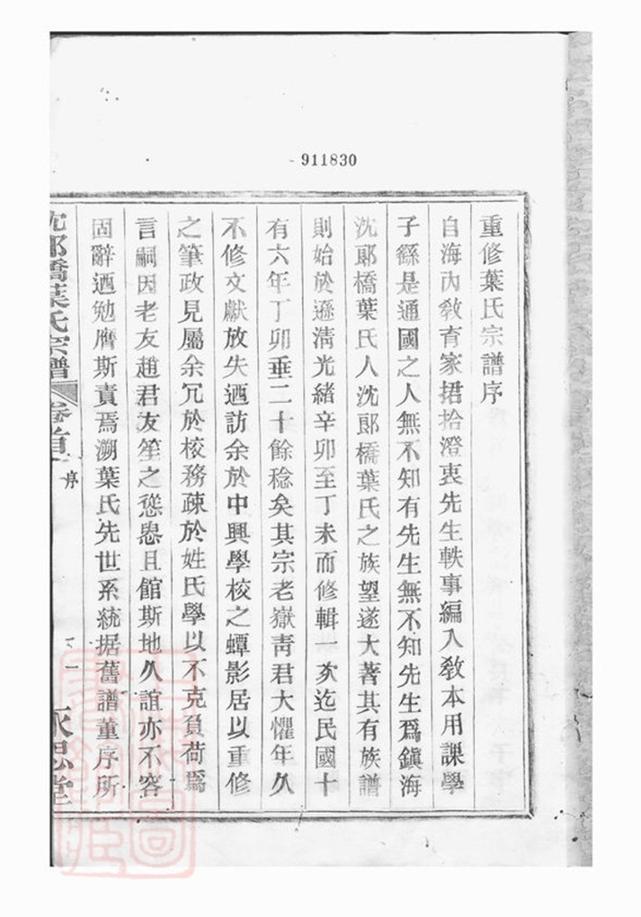 911830
重修葉氏宗譜序
自海內敎育家捃拾澄衷先生軼事編入敎本用課學
子繇是通國之人無不知有先生無不知先生爲鎭海
沈郞橋葉氏人沈郞橋葉氏之族望遂大著其有族譜
則始於遜清光緒辛卯至丁未而修輯一次迄民國十
有六年丁卯垂二十餘稔矣其宗老嶽靑君大懼年久
不修文獻放失迺訪余於中興學校之蟫影居以重修
之筆政見屬余冗於校務疎於姓氏學以不克負荷爲
言嗣因老友趙君友笙之慫恿且館斯地久誼亦不容
固辭迺勉膺斯責焉溯葉氏先世系統据舊譜董序所
沈郞橋葉氏宗譜 卷首 序 一 永思堂